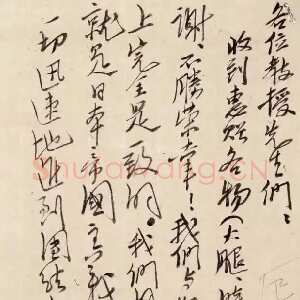 各位教授先生們：
收到惠贈各物（火腿
謝，不勝榮幸！我們与
上完全是一致的。我們
就是日本帝國主義
一切迅速地進到團結
Shufawang.CN